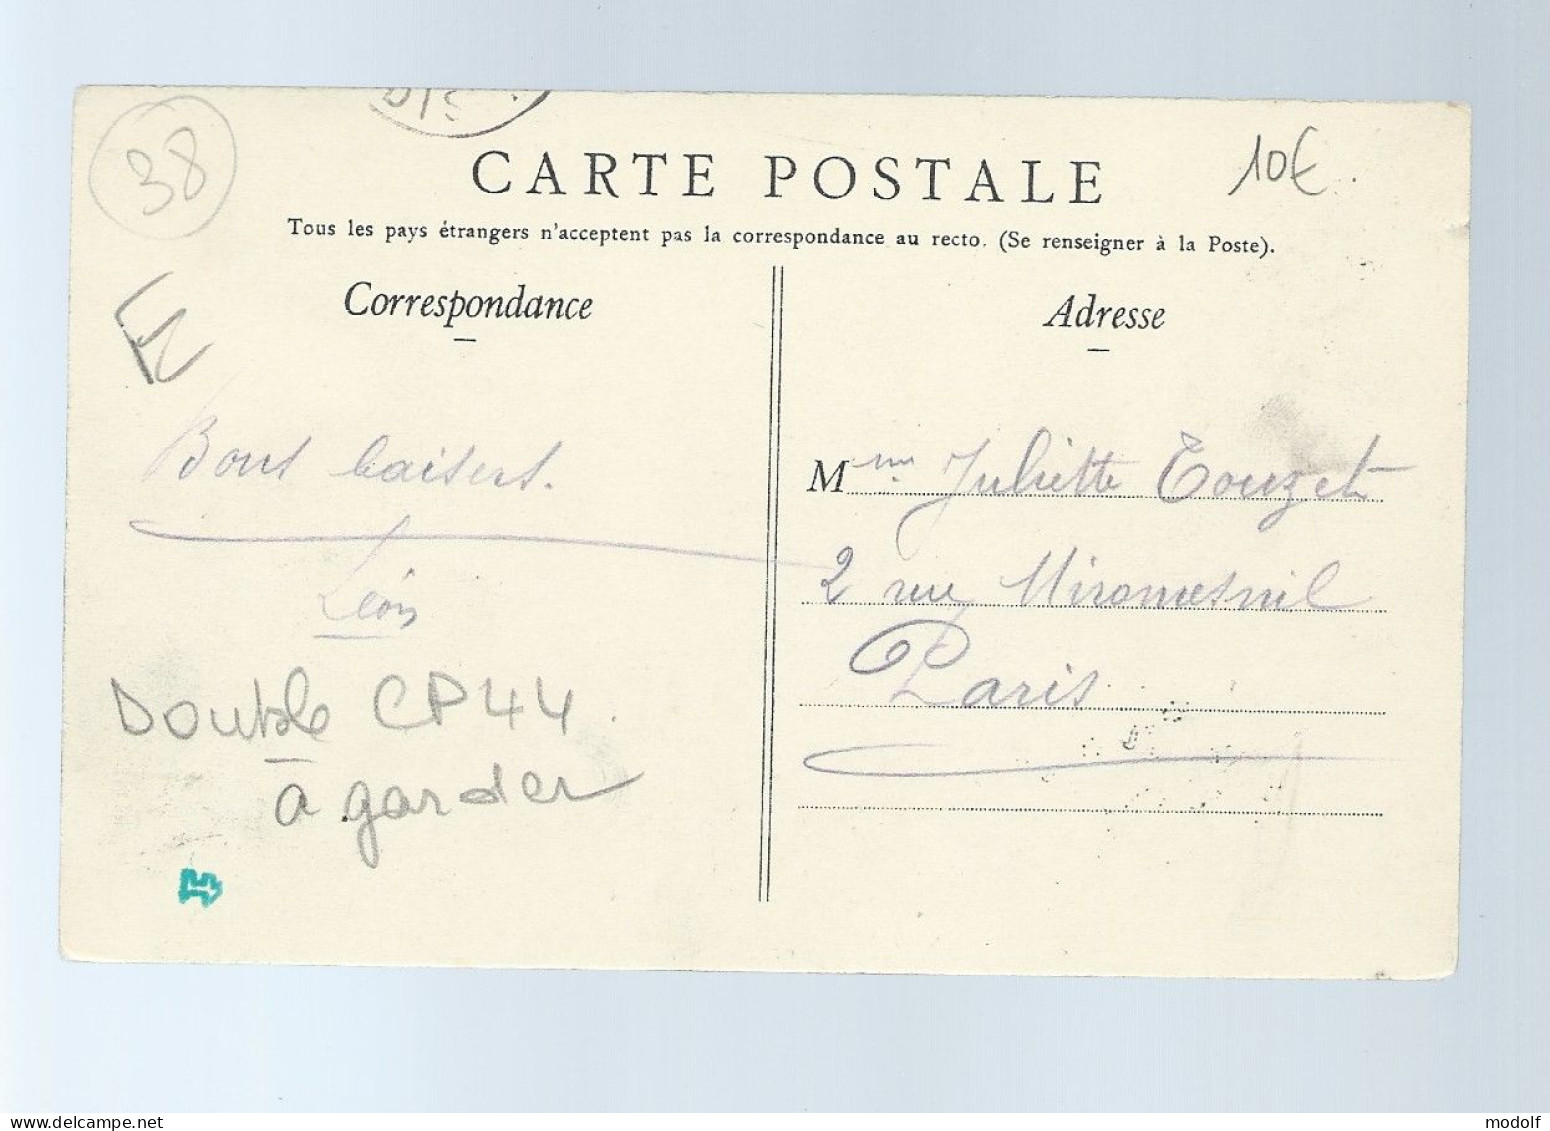 38
CARTE POSTALE
10€
Tous les pays étrangers n'acceptent pas la correspondance au recto. (Se renseigner à la Poste).
Correspondance
Adresse
E
Bons baisers.
Léon
Mme Juliette Touzet
2 rue Miromesnil
Paris
Double CP44
à garder
delcampe.net
modolf